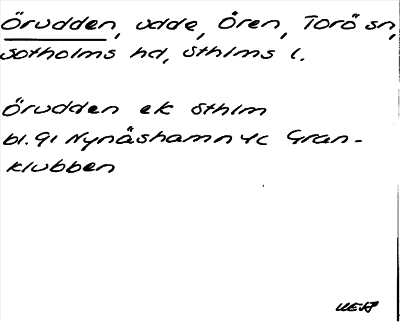 Örudden, udde, Ören, Torö sn,
Sotholms hd, Sthlms l.
Örudden ek Sthlm
bl. 91 Nynäshamn 4c Gran-
klubben